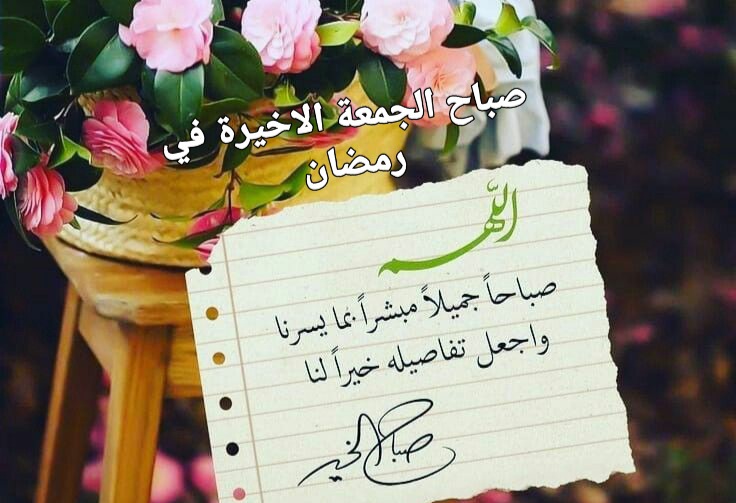 صباح الجمعة الاخيرة في
رمضان
اللّهم
صباحاً جميلاً مبشراً بما يسرنا
واجعل تفاصيله خيراً لنا
صباح الخير